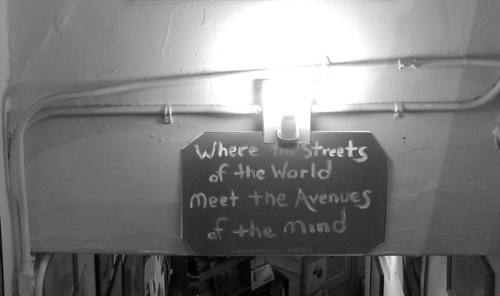 Where the Streets
of the World
Meet the Avenues
of the Mind